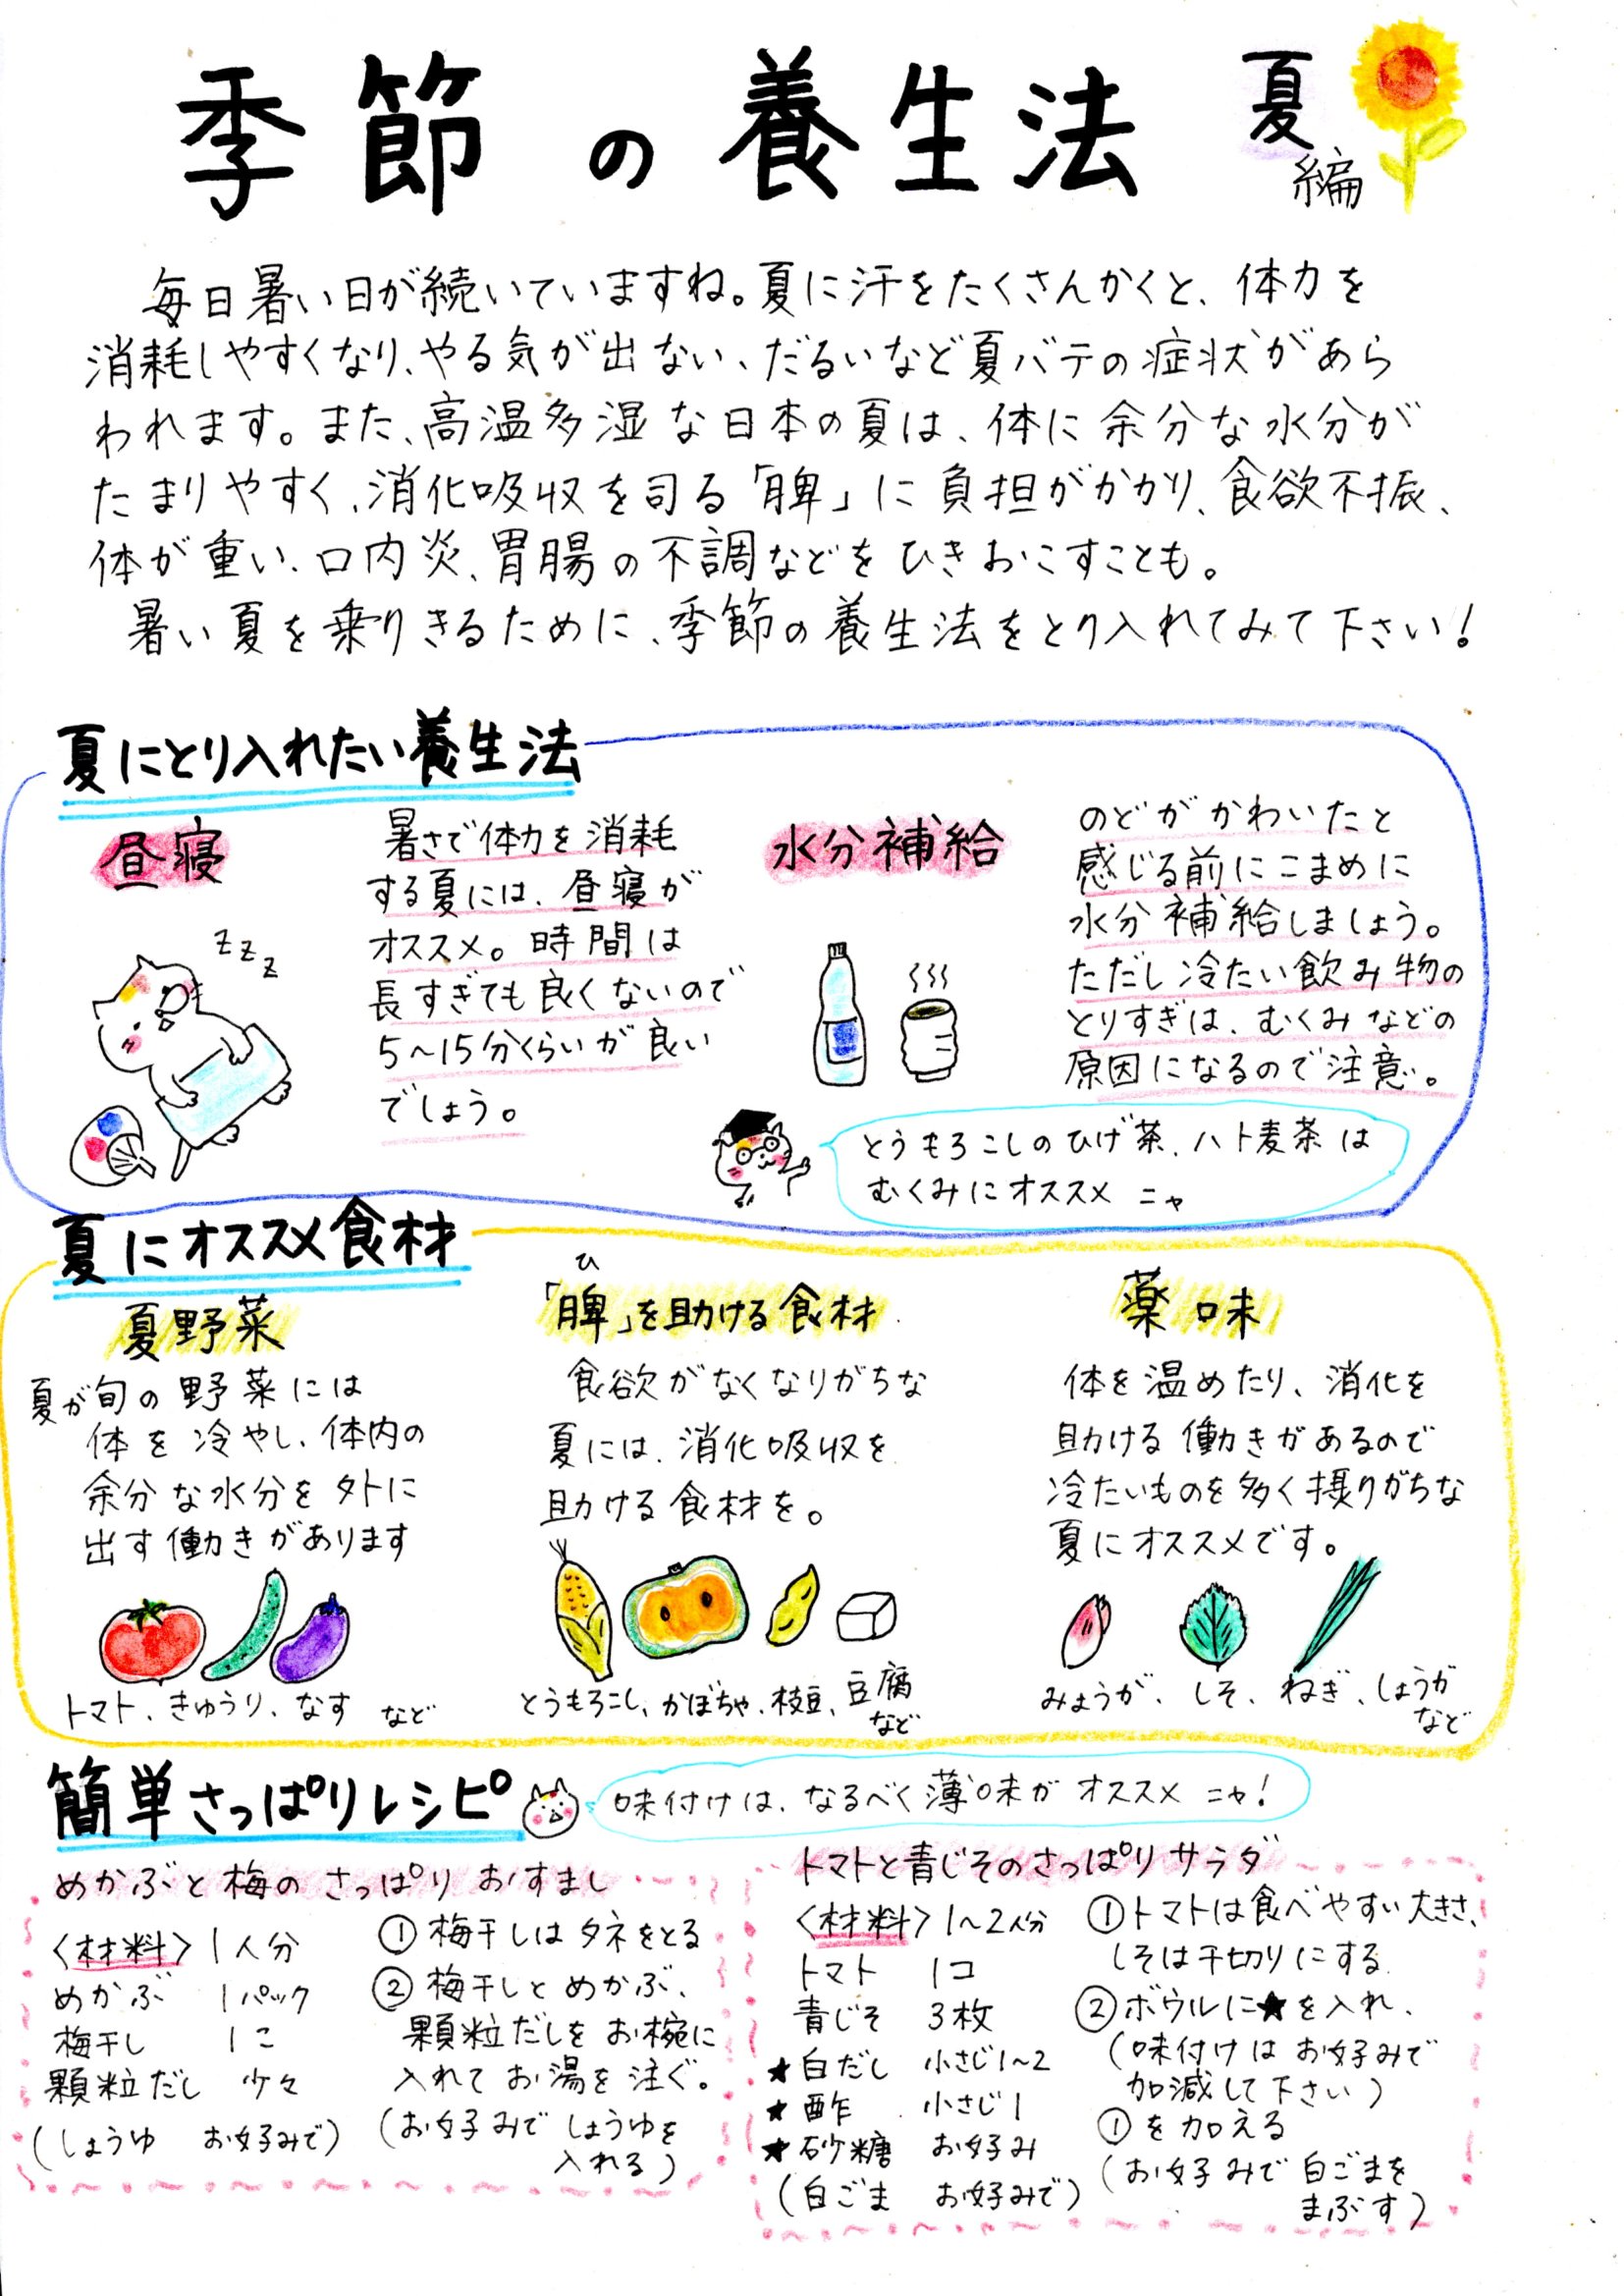 季節の養生法 夏編
毎日暑い日が続いていますね。夏に汗をたくさんかくと、体力を
消耗しやすくなり、やる気が出ない、だるいなど夏バテの症状があら
われます。また、高温多湿な日本の夏は、体に余分な水分が
たまりやすく、消化吸収を司る「脾」に負担がかかり、食欲不振、
体が重い、口内炎、胃腸の不調などをひきおこすことも。
暑い夏を乗りきるために、季節の養生法をとり入れてみて下さい！
夏にとり入れたい養生法
昼寝
zzz
暑さで体力を消耗
する夏には、昼寝が
オススメ。時間は
長すぎても良くないので
5～15分くらいが良い
でしょう。
水分補給
のどがかわいたと
感じる前にこまめに
水分補給しましょう。
ただし冷たい飲み物の
とりすぎは、むくみなどの
原因になるので注意。
とうもろこしのひげ茶、ハト麦茶は
むくみにオススメ ニャ
夏にオススメ食材
夏野菜
夏が旬の野菜には
体を冷やし、体内の
余分な水分を外に
出す働きがあります
トマト、きゅうり、なす など
ひ
「脾」を助ける食材
食欲がなくなりがちな
夏には、消化吸収を
助ける食材を。
とうもろこし、かぼちゃ、枝豆、豆腐
など
薬味
体を温めたり、消化を
助ける働きがあるので
冷たいものを多く摂りがちな
夏にオススメです。
みょうが、しそ、ねぎ、しょうが
など
簡単さっぱりレシピ
味付けは、なるべく薄味がオススメ ニャ！
めかぶと梅のさっぱりおすまし
〈材料〉1人分
めかぶ 1パック
梅干し 1こ
顆粒だし 少々
(しょうゆ お好みで)
①梅干しはタネをとる
②梅干しとめかぶ、
顆粒だしをお椀に
入れてお湯を注ぐ。
(お好みでしょうゆを
入れる)
トマトと青じそのさっぱりサラダ
〈材料〉1～2人分
トマト 1コ
青じそ 3枚
★白だし 小さじ1～2
★酢 小さじ1
★砂糖 お好み
(白ごま お好みで)
①トマトは食べやすい大きさ、
しそは千切りにする
②ボウルに★を入れ、
(味付けはお好みで
加減して下さい)
①を加える
(お好みで白ごまを
まぶす)